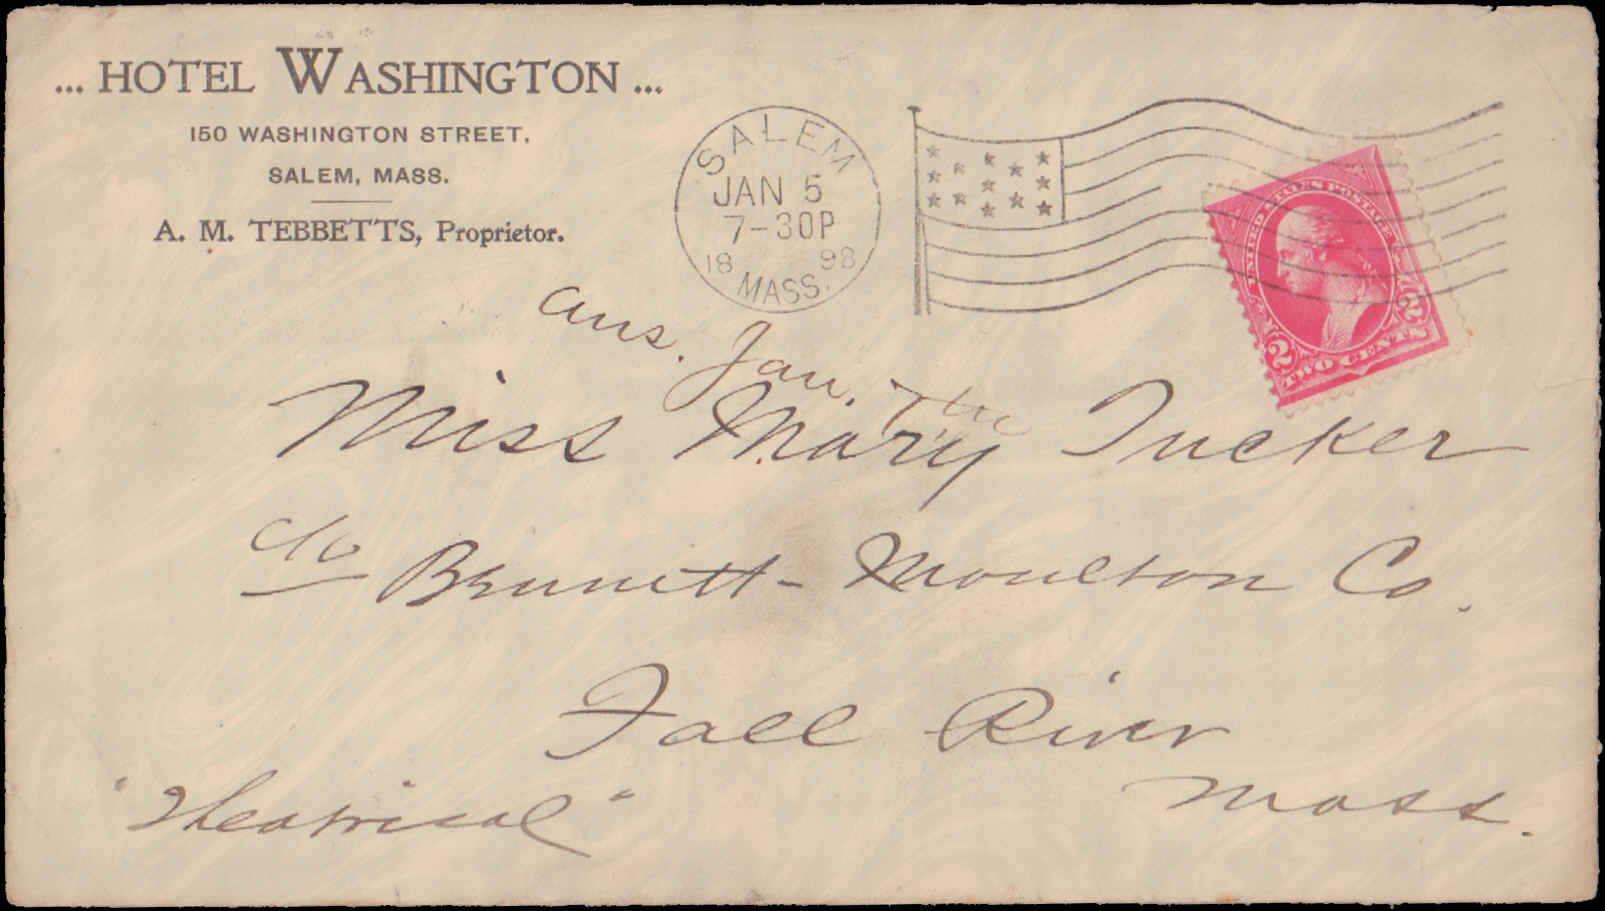 ... HOTEL WASHINGTON ...
150 WASHINGTON STREET,
SALEM, MASS.
A. M. TEBBETTS, Proprietor.
SALEM
JAN 5
7-30P
1898
MASS.
UNITED STATES POSTAGE
2 2
TWO CENTS
ans. Jan. 7th
Miss Mary Tucker
c/o Bennett-Moulton Co.
Fall River
Mass.
"Theatrical"